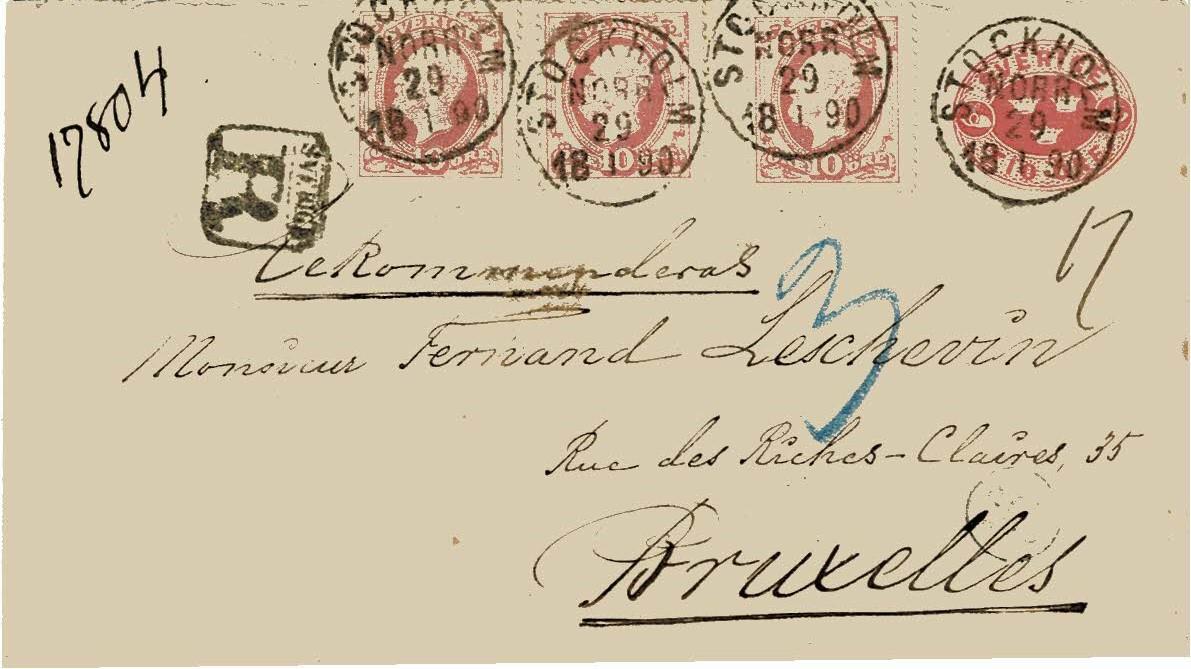 17804
STOCKHOLM
NORR
29
18 1 90
SVERIGE
10 ÖRE
STOCKHOLM
NORR
29
18 1 90
10
STOCKHOLM
NORR
29
18 1 90
10 ÖRE
STOCKHOLM
NORR
29
18 1 90
SVERIGE
R
17
Rekommenderas
3
Monsieur Fernand Leschevin
Rue des Riches-Claires, 35
Bruxelles